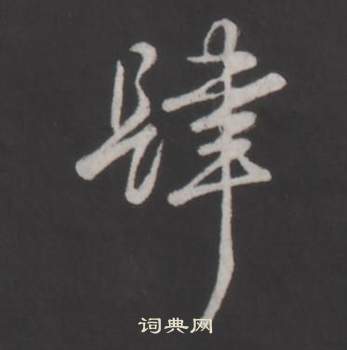 肆
词典网